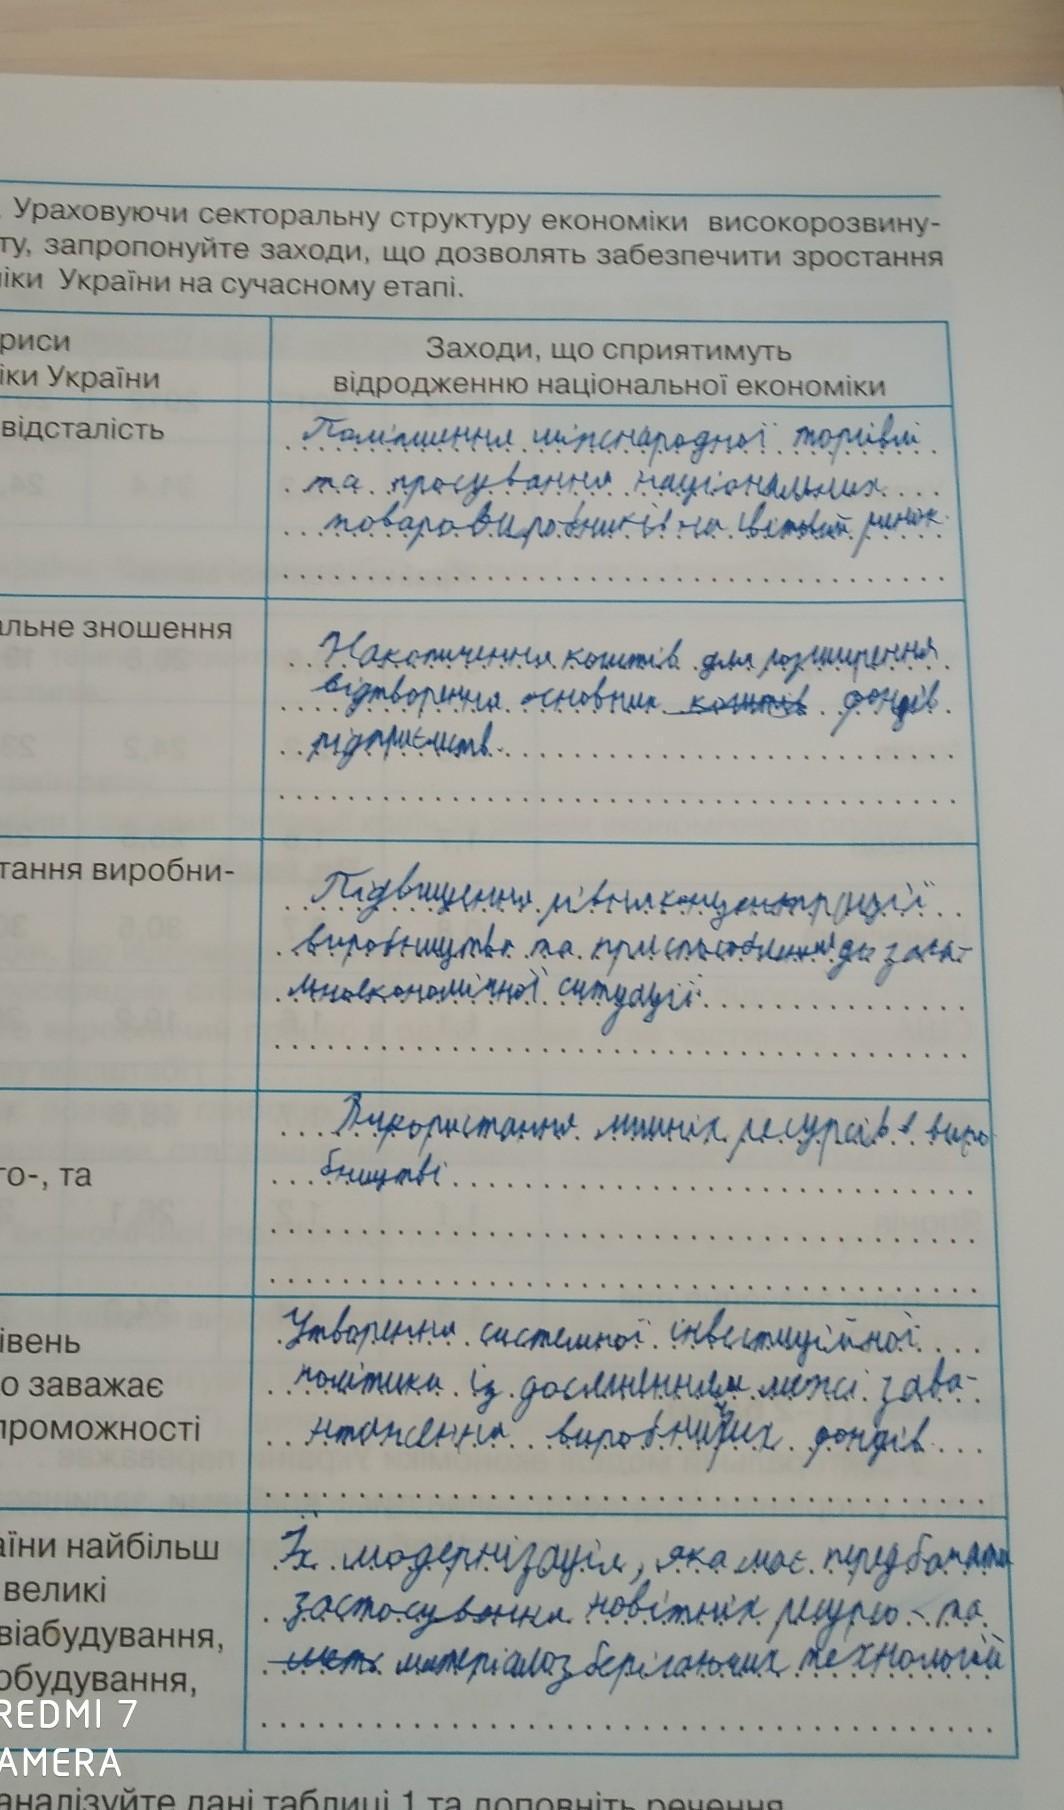 . Ураховуючи секторальну структуру економіки високорозвину-
ту, запропонуйте заходи, що дозволять забезпечити зростання
іки України на сучасному етапі.
риси
іки України
Заходи, що сприятимуть
відродженню національної економіки
відсталість
Поліпшення міжнародної торгівлі
та просування національних
товаровиробників на світовий ринок
альне зношення
Накопичення коштів для розширення
відтворення основних коштів фондів
підприємств.
тання виробни-
Підвищення рівня концентрації
виробництва та до зага-
льноекономічної ситуації.
го-, та
Використання ресурсів в виро
бництві
івень
о заважає
проможності
Утворення системної інвестиційної
політики із досягненням межі зава-
нтаження виробничих фондів
аїни найбільш
великі
віабудування,
обудування,
Їх модернізація, яка має передбачати
застосування новітніх ресурсо - та
матеріалозберігаючих технологій
REDMI 7
AMERA
аналізуйте дані таблиці 1 та доповніть речення